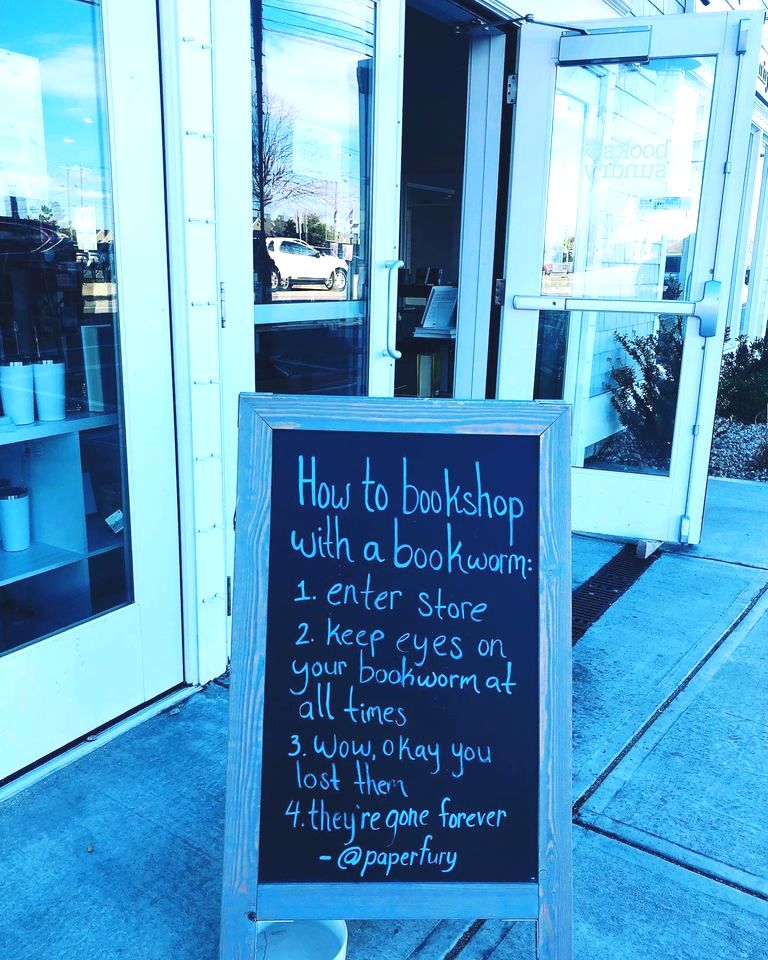 books &
sundry
How to bookshop
with a bookworm:
1. enter store
2. keep eyes on
your bookworm at
all times
3. wow, okay you
lost them
4. they're gone forever
- @paperfury